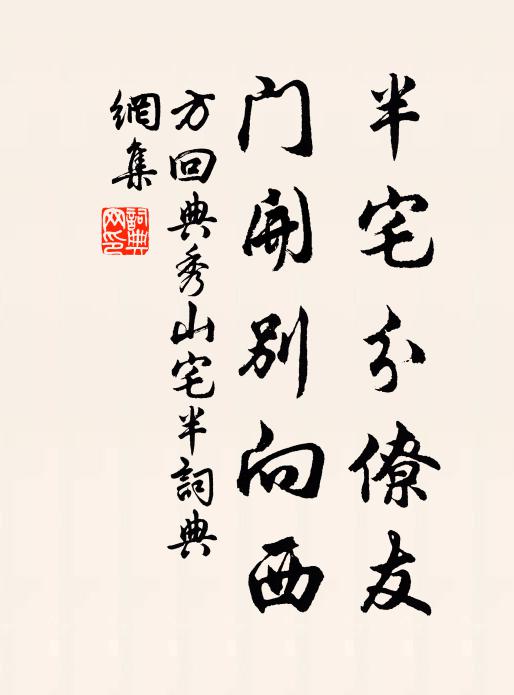 半宅分僚友
门開别向西
方回典秀山宅半詞典
網集
詞典网印